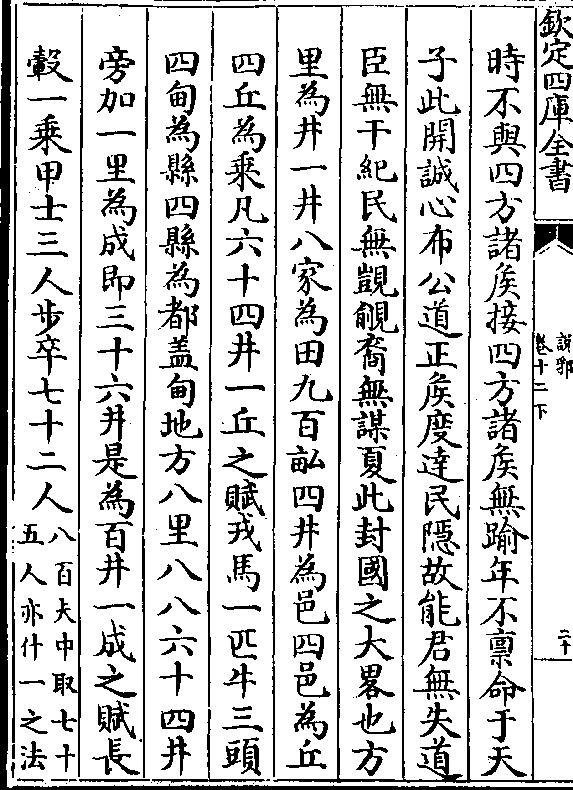 欽定四庫全書
說郛
卷十二下
二十
時不與四方諸矦接四方諸矦無踰年不禀命于天
子此開誠心布公道正矦度達民隱故能君無失道
臣無干紀民無覬覦裔無謀夏此封國之大畧也方
里為井一井八家為田九百畝四井為邑四邑為丘
四丘為乘凡六十四井一丘之賦戎馬一匹牛三頭
四甸為縣四縣為都盖甸地方八里八八六十四井
旁加一里為成即三十六井是為百井一成之賦長
轂一乘甲士三人步卒七十二人
八百夫中取七十
五人亦什一之法